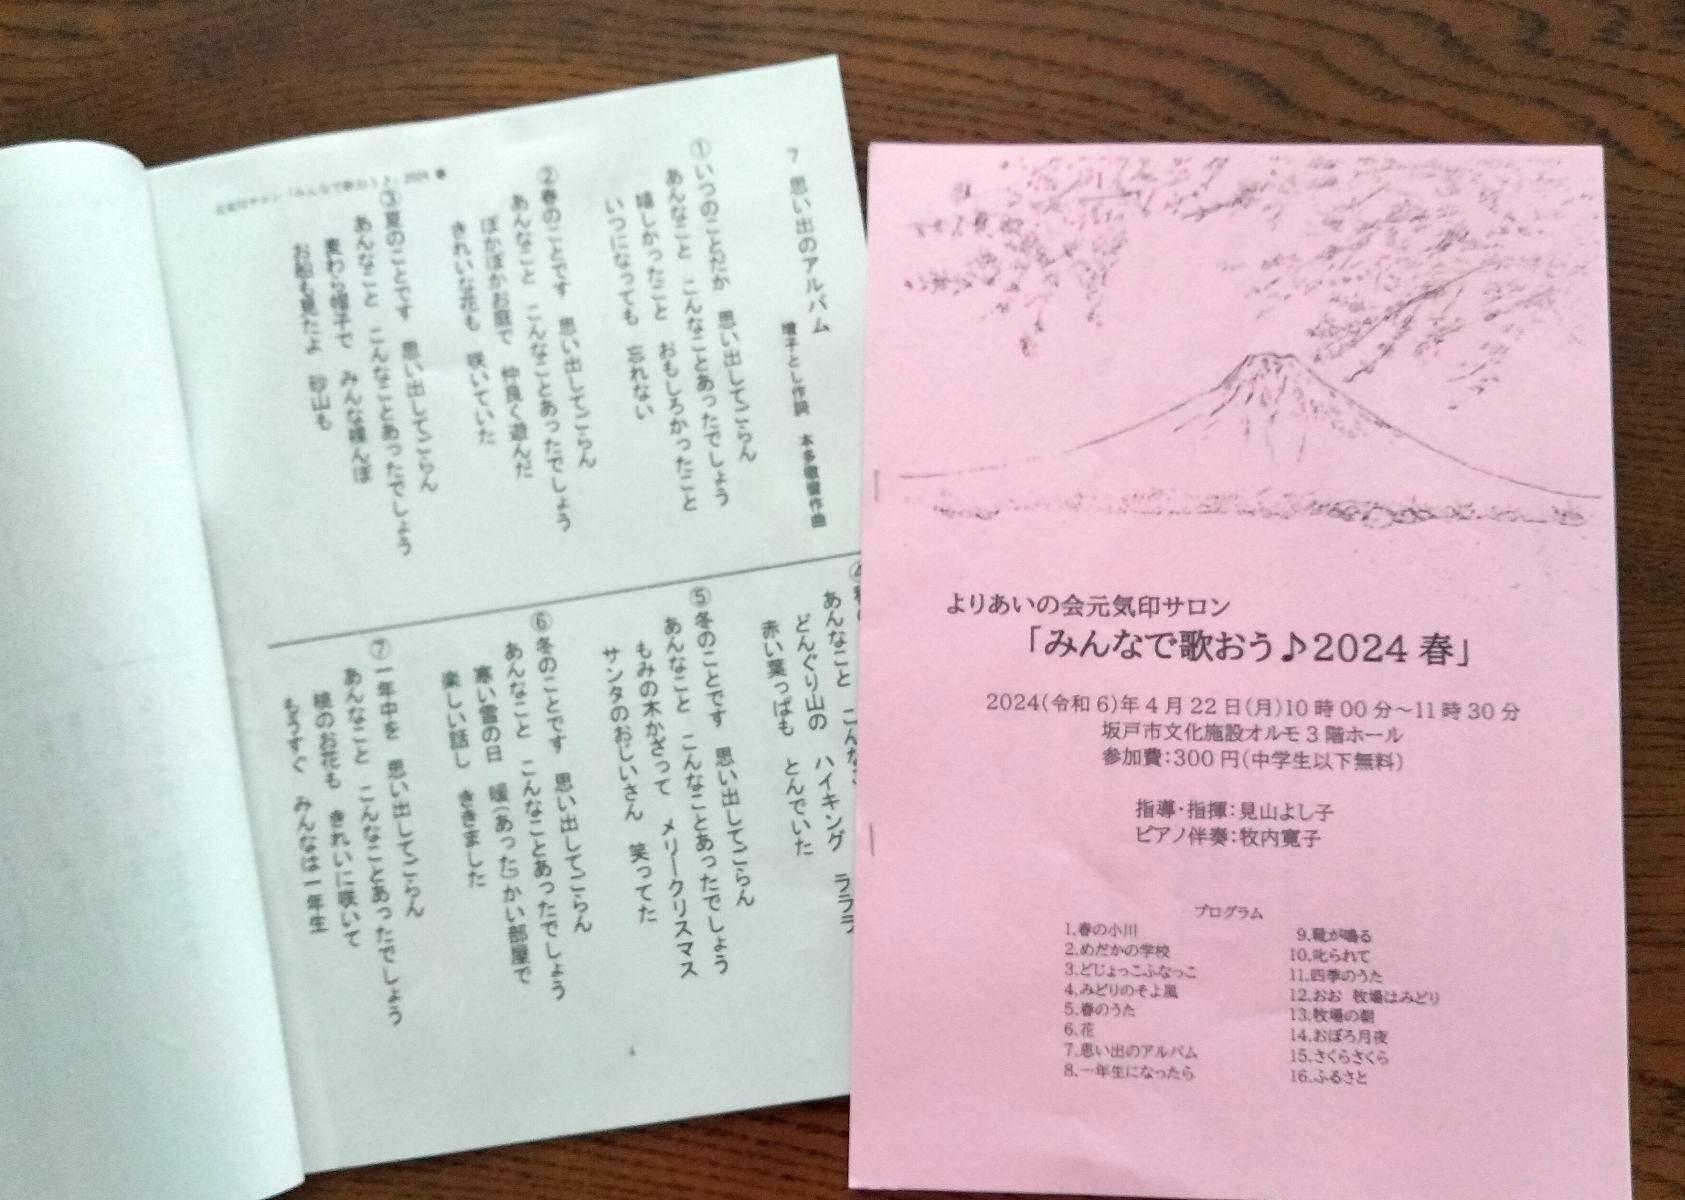 7 思い出のアルバム
増子とし作詞 本多鉄磨作曲
①いつのことだか 思い出してごらん
あんなこと こんなことあったでしょう
嬉しかったこと おもしろかったこと
いつになっても 忘れない
②春のことです 思い出してごらん
あんなこと こんなことあったでしょう
ぽかぽかお庭で 仲良く遊んだ
きれいな花も 咲いていた
③夏のことです 思い出してごらん
あんなこと こんなことあったでしょう
麦わら帽子で みんな裸んぼ
お船も見たよ 砂山も
元気印サロン「みんなで歌おう♪」2024 春
あんなこと こんなこ
どんぐり山の ハイキング ラララ
赤い葉っぱも とんでいた
⑤冬のことです 思い出してごらん
あんなこと こんなことあったでしょう
もみの木かざって メリークリスマス
サンタのおじいさん 笑ってた
⑥冬のことです 思い出してごらん
あんなこと こんなことあったでしょう
寒い雪の日 暖(あった)かい部屋で
楽しい話し ききました
⑦一年中を 思い出してごらん
あんなこと こんなことあったでしょう
桃のお花も きれいに咲いて
もうすぐ みんなは一年生
よりあいの会元気印サロン
「みんなで歌おう♪2024 春」
2024(令和 6)年 4 月 22 日(月)10 時 00 分～11 時 30 分
坂戸市文化施設オルモ 3 階ホール
参加費:300 円(中学生以下無料)
指導・指揮:見山よし子
ピアノ伴奏:牧内寛子
プログラム
1.春の小川
2.めだかの学校
3.どじょっこふなっこ
4.みどりのそよ風
5.春のうた
6.花
7.思い出のアルバム
8.一年生になったら
9.靴が鳴る
10.叱られて
11.四季のうた
12.おお 牧場はみどり
13.牧場の朝
14.おぼろ月夜
15.さくらさくら
16.ふるさと